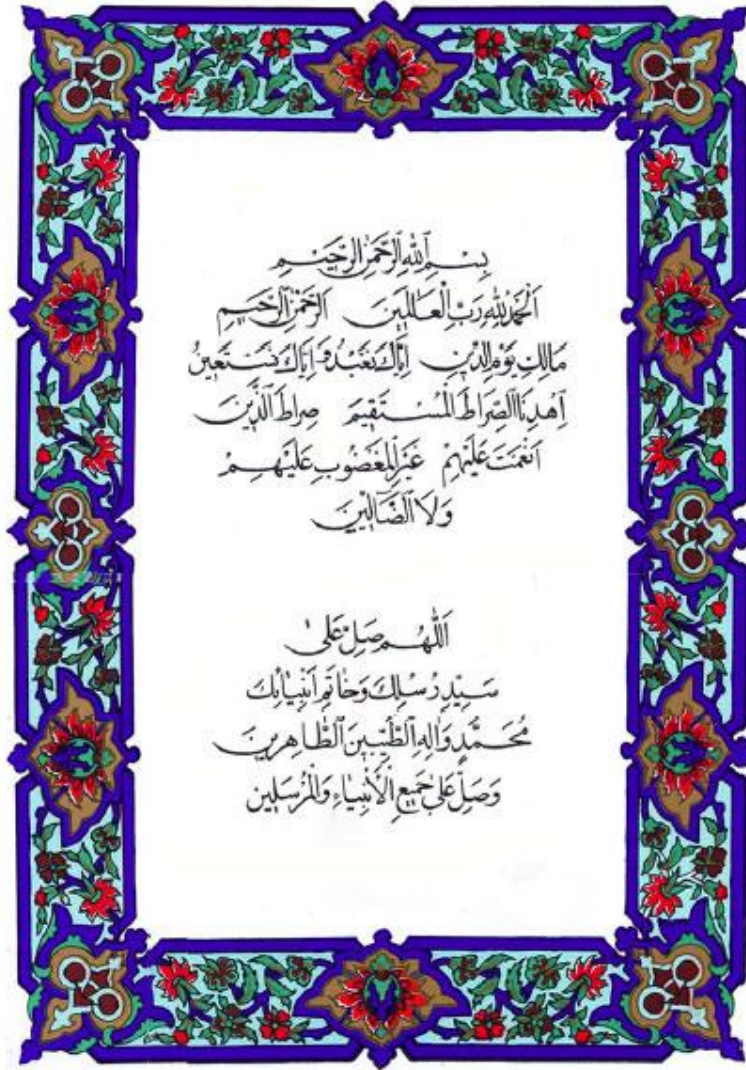 بِسْمِ اللهِ الرَّحْمٰنِ الرَّحِيمِ
اَلْحَمْدُ لِلّٰهِ رَبِّ الْعَالَمِينَ اَلرَّحْمٰنِ الرَّحِيمِ
مَالِكِ يَوْمِ الدِّينِ اِيَّاكَ نَعْبُدُ وَ اِيَّاكَ نَسْتَعِينُ
اِهْدِنَا الصِّرَاطَ الْمُسْتَقِيمَ صِرَاطَ الَّذِينَ
اَنْعَمْتَ عَلَيْهِمْ غَيْرِ الْمَغْضُوبِ عَلَيْهِمْ
وَلَا الضَّالِّينَ
اَللّٰهُمَّ صَلِّ عَلٰى
سَيِّدِ رُسُلِكَ وَخَاتَمِ اَنْبِيَائِكَ
مُحَمَّدٍ وَاٰلِهِ الطَّيِّبِينَ الطَّاهِرِينَ
وَصَلِّ عَلٰى جَمِيعِ الْأَنْبِيَاءِ وَالْمُرْسَلِينَ